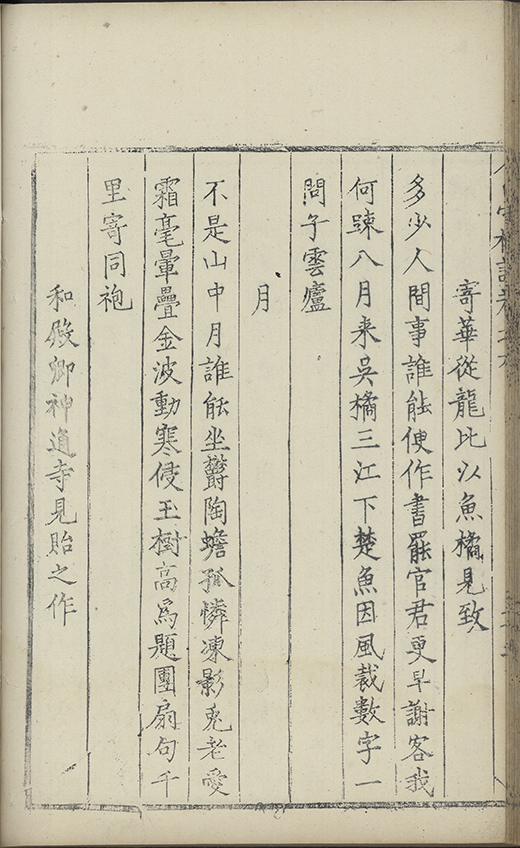 寄華從龍比以魚橘見致
多少人間事誰能便作書罷官君更早謝客我
何踈八月来吳橘三江下楚魚因風裁數字一
問子雲廬
月
不是山中月誰能坐欝陶蟾孤憐凍影兎老愛
霜毫暈疊金波動寒侵玉樹高爲題團扇句千
里寄同袍
和殷卿神通寺見貽之作